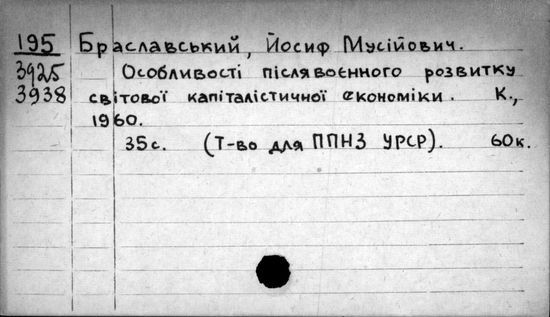 195 Браславський, Йосиф Мусійович.
3925 Особливості післявоєнного розвитку
3938 світової капіталістичної економіки. К.,
1960.
35 с. (Т-во для ППНЗ УРСР). 60 к.